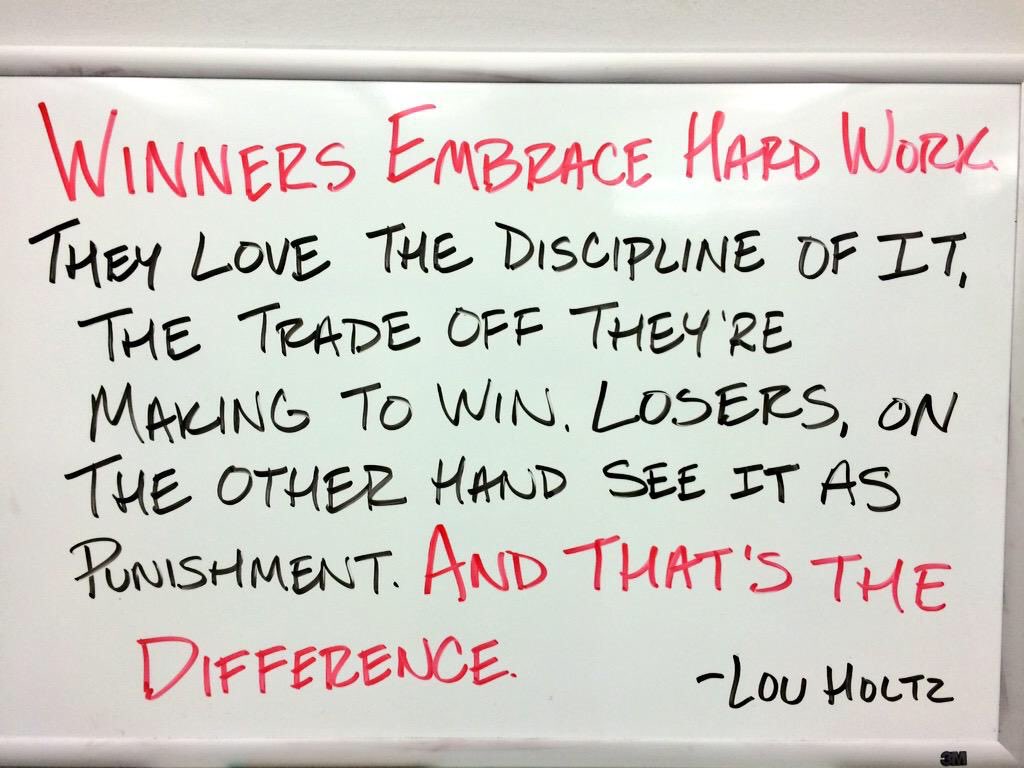 WINNERS EMBRACE HARD WORK.
THEY LOVE THE DISCIPLINE OF IT,
THE TRADE OFF THEY'RE
MAKING TO WIN. LOSERS, ON
THE OTHER HAND SEE IT AS
PUNISHMENT. AND THAT'S THE
DIFFERENCE.
-LOU HOLTZ
3M